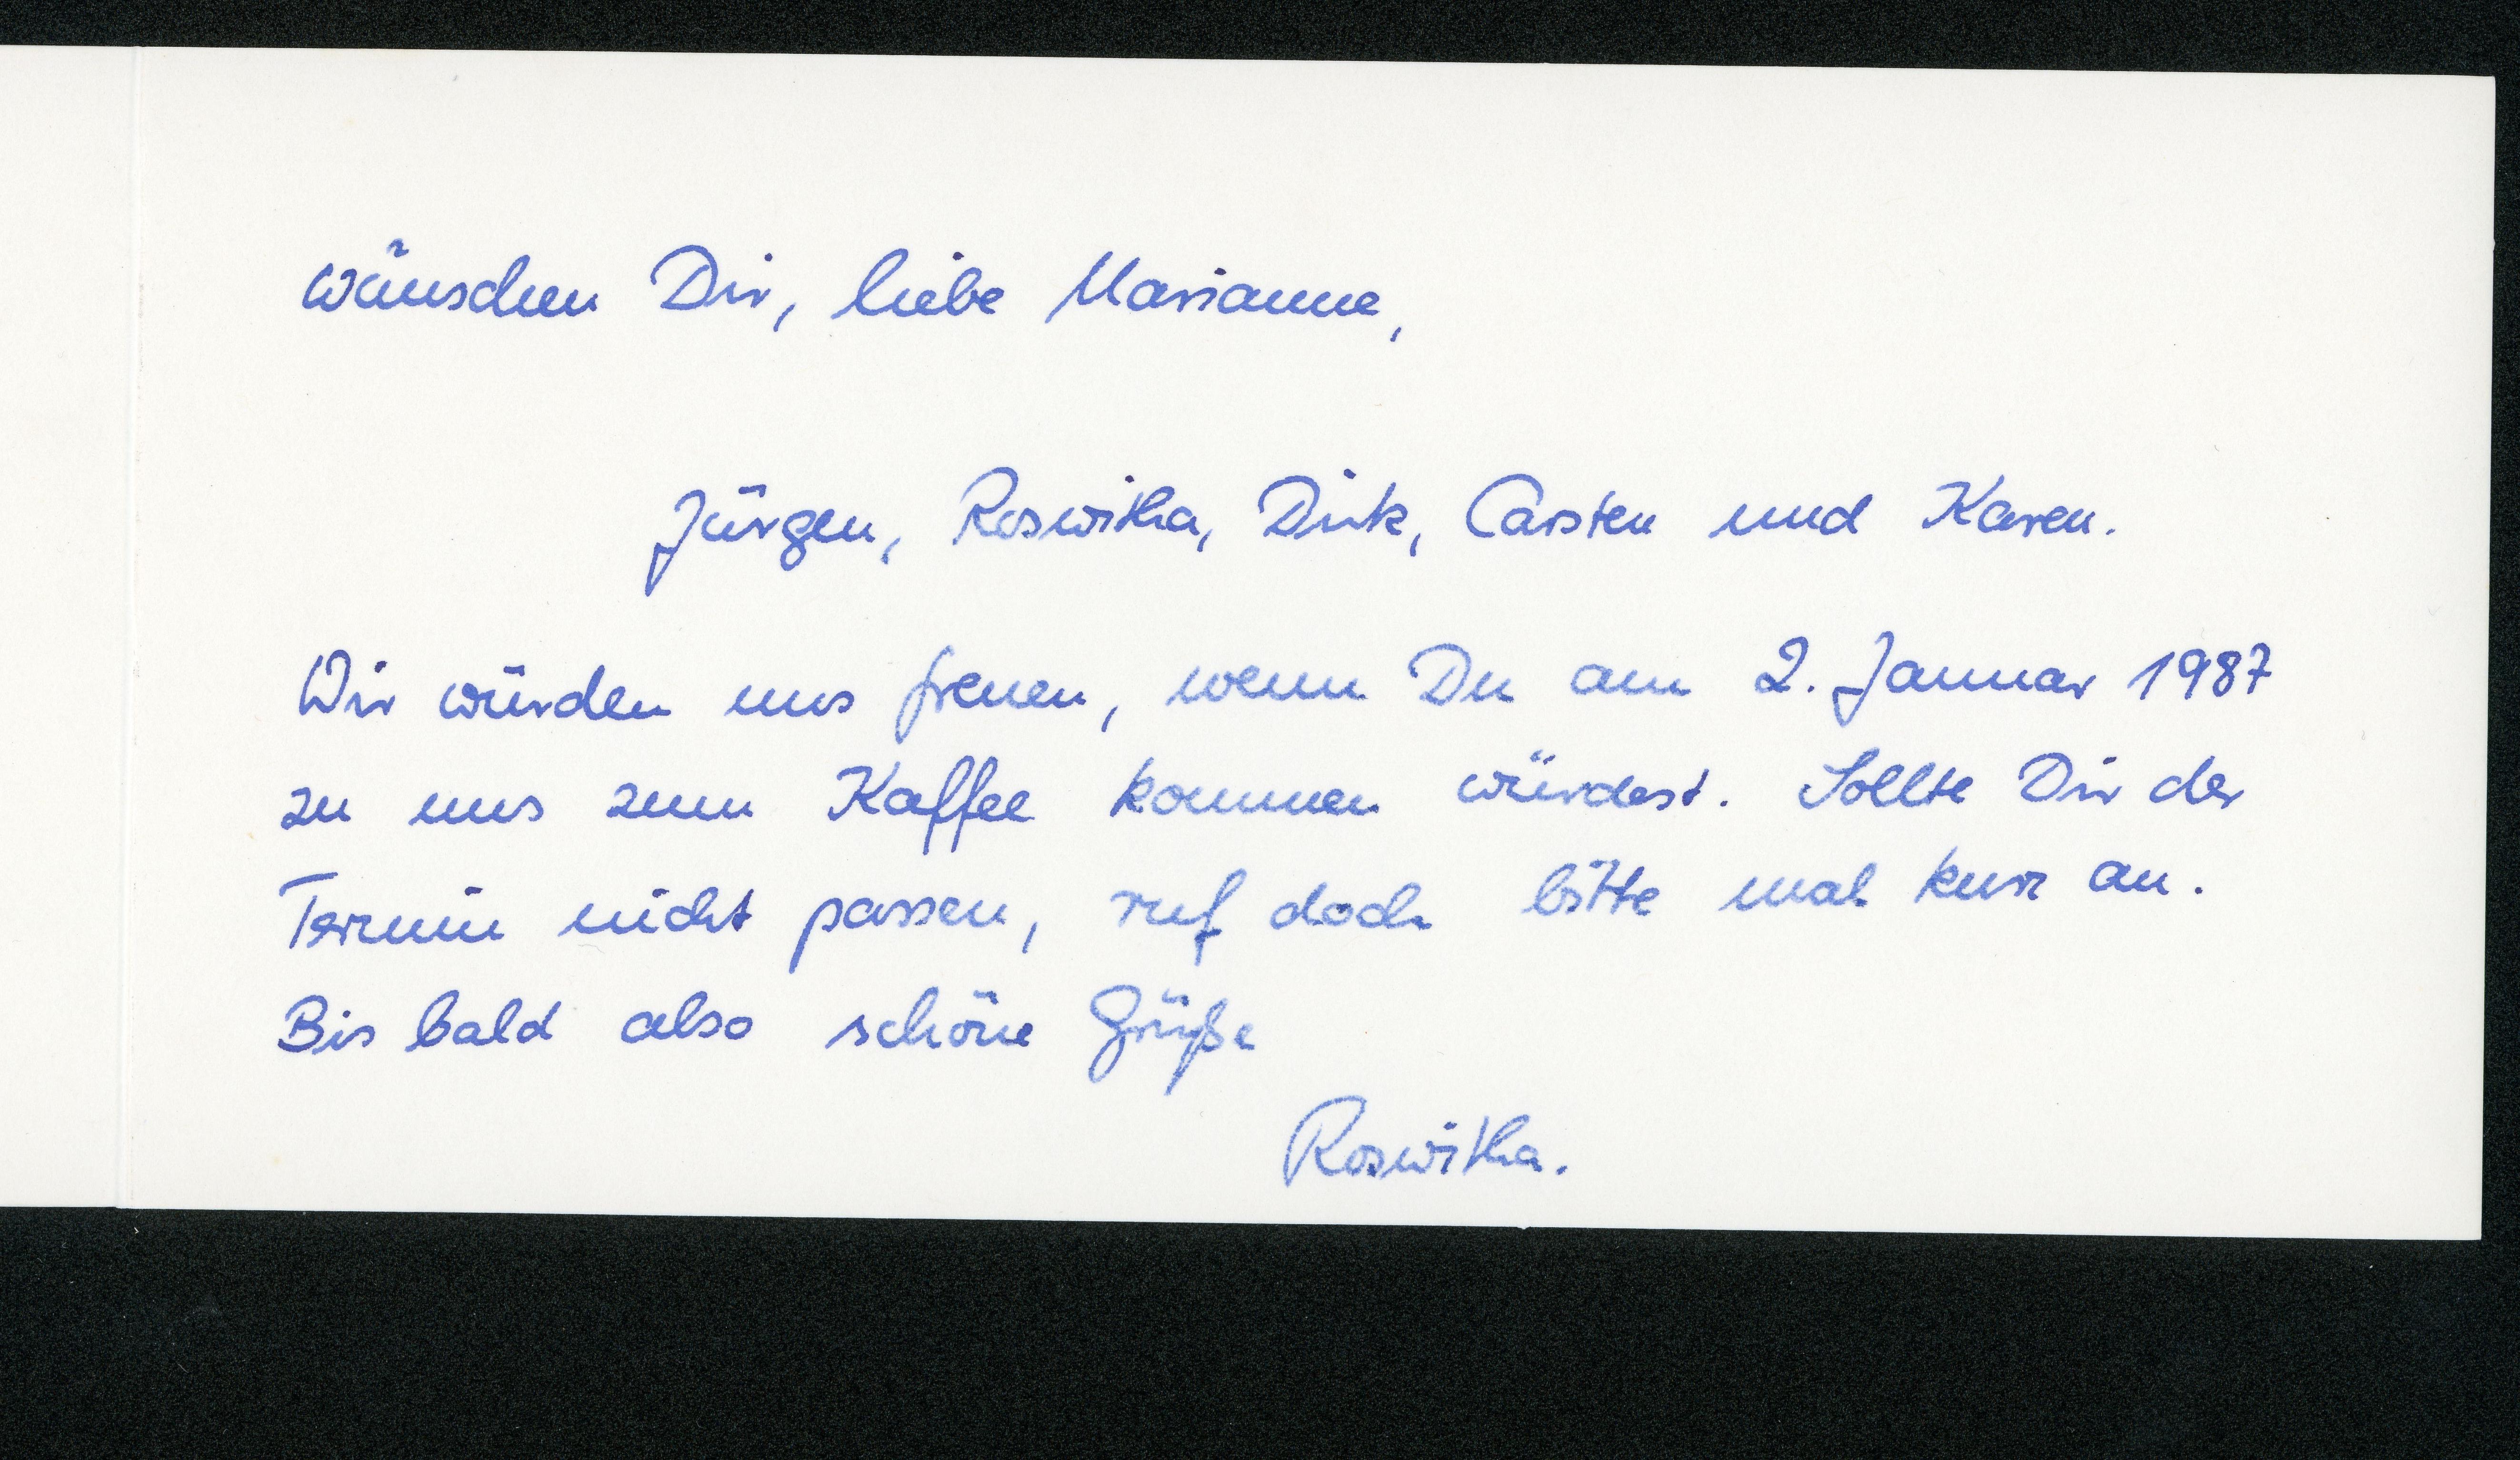 wünschen Dir, liebe Marianne,
Jürgen, Roswitha, Dirk, Carsten und Karen.
Wir würden uns freuen, wenn Du am 2. Januar 1987
zu uns zum Kaffee kommen würdest. Sollte Dir der
Termin nicht passen, ruf doch bitte mal kurz an.
Bis bald also schöne Grüße
Roswitha.